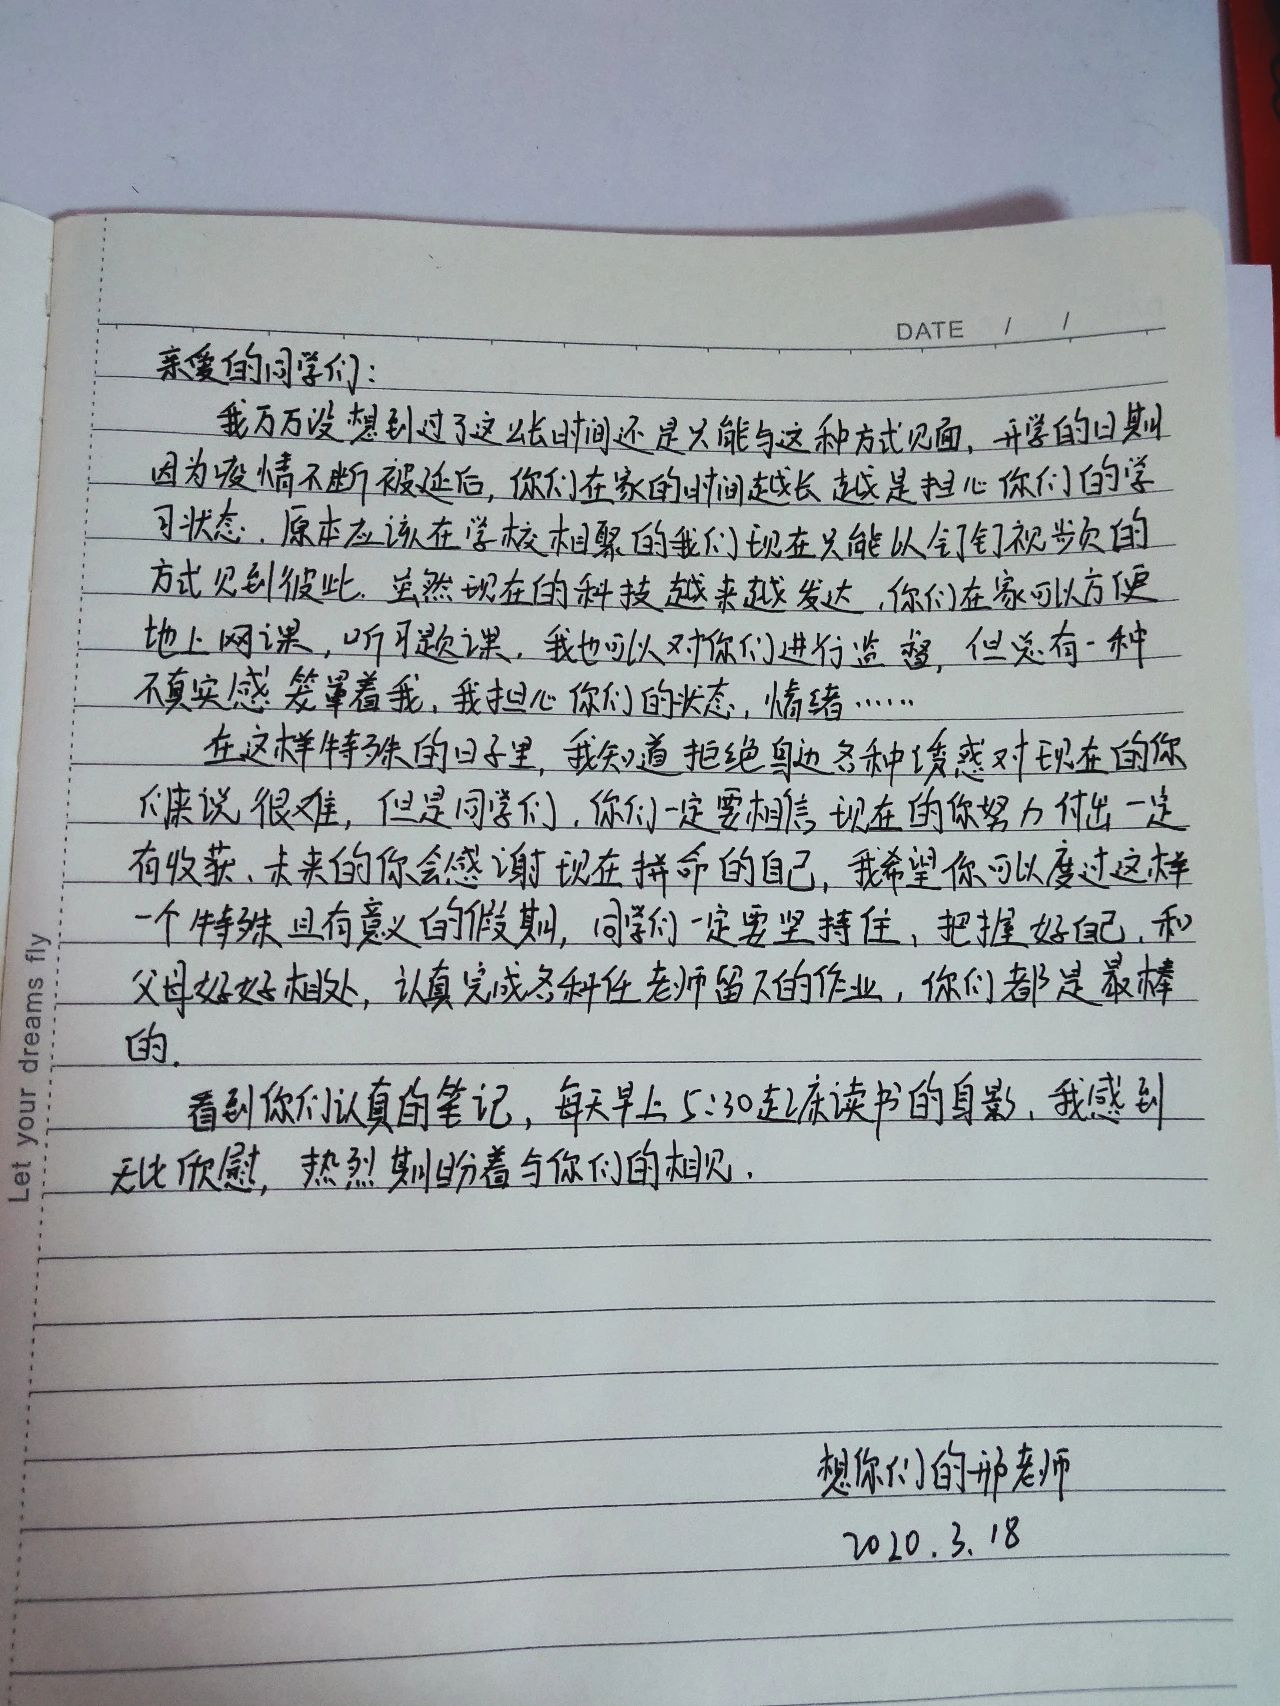 DATE / /
亲爱的同学们:
我万万没想到过了这么长时间还是只能与这种方式见面,开学的日期
因为疫情不断被延后,你们在家的时间越长越是担心你们的学
习状态.原本应该在学校相聚的我们现在只能以钉钉视频的
方式见到彼此.虽然现在的科技越来越发达,你们在家可以方便
地上网课,听习题课.我也可以对你们进行监督,但总有一种
不真实感笼罩着我,我担心你们的状态,情绪……
在这样特殊的日子里,我知道拒绝身边各种诱惑对现在的你
们来说很难,但是同学们,你们一定要相信现在的你努力付出一定
有收获、未来的你会感谢现在拼命的自己,我希望你可以度过这样
一个特殊且有意义的假期,同学们一定要坚持住、把握好自己,和
父母好好相处,认真完成各科任老师留下的作业,你们都是最棒
的.
看到你们认真的笔记,每天早上5:30起床读书的身影,我感到
无比欣慰,热烈期盼着与你们的相见.
想你们的邢老师
2020.3.18
Let your dreams fly